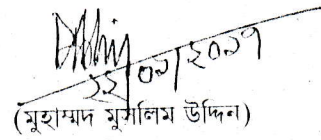 ২২/০২/২০২১
(মুহাম্মদ মুসলিম উদ্দিন)